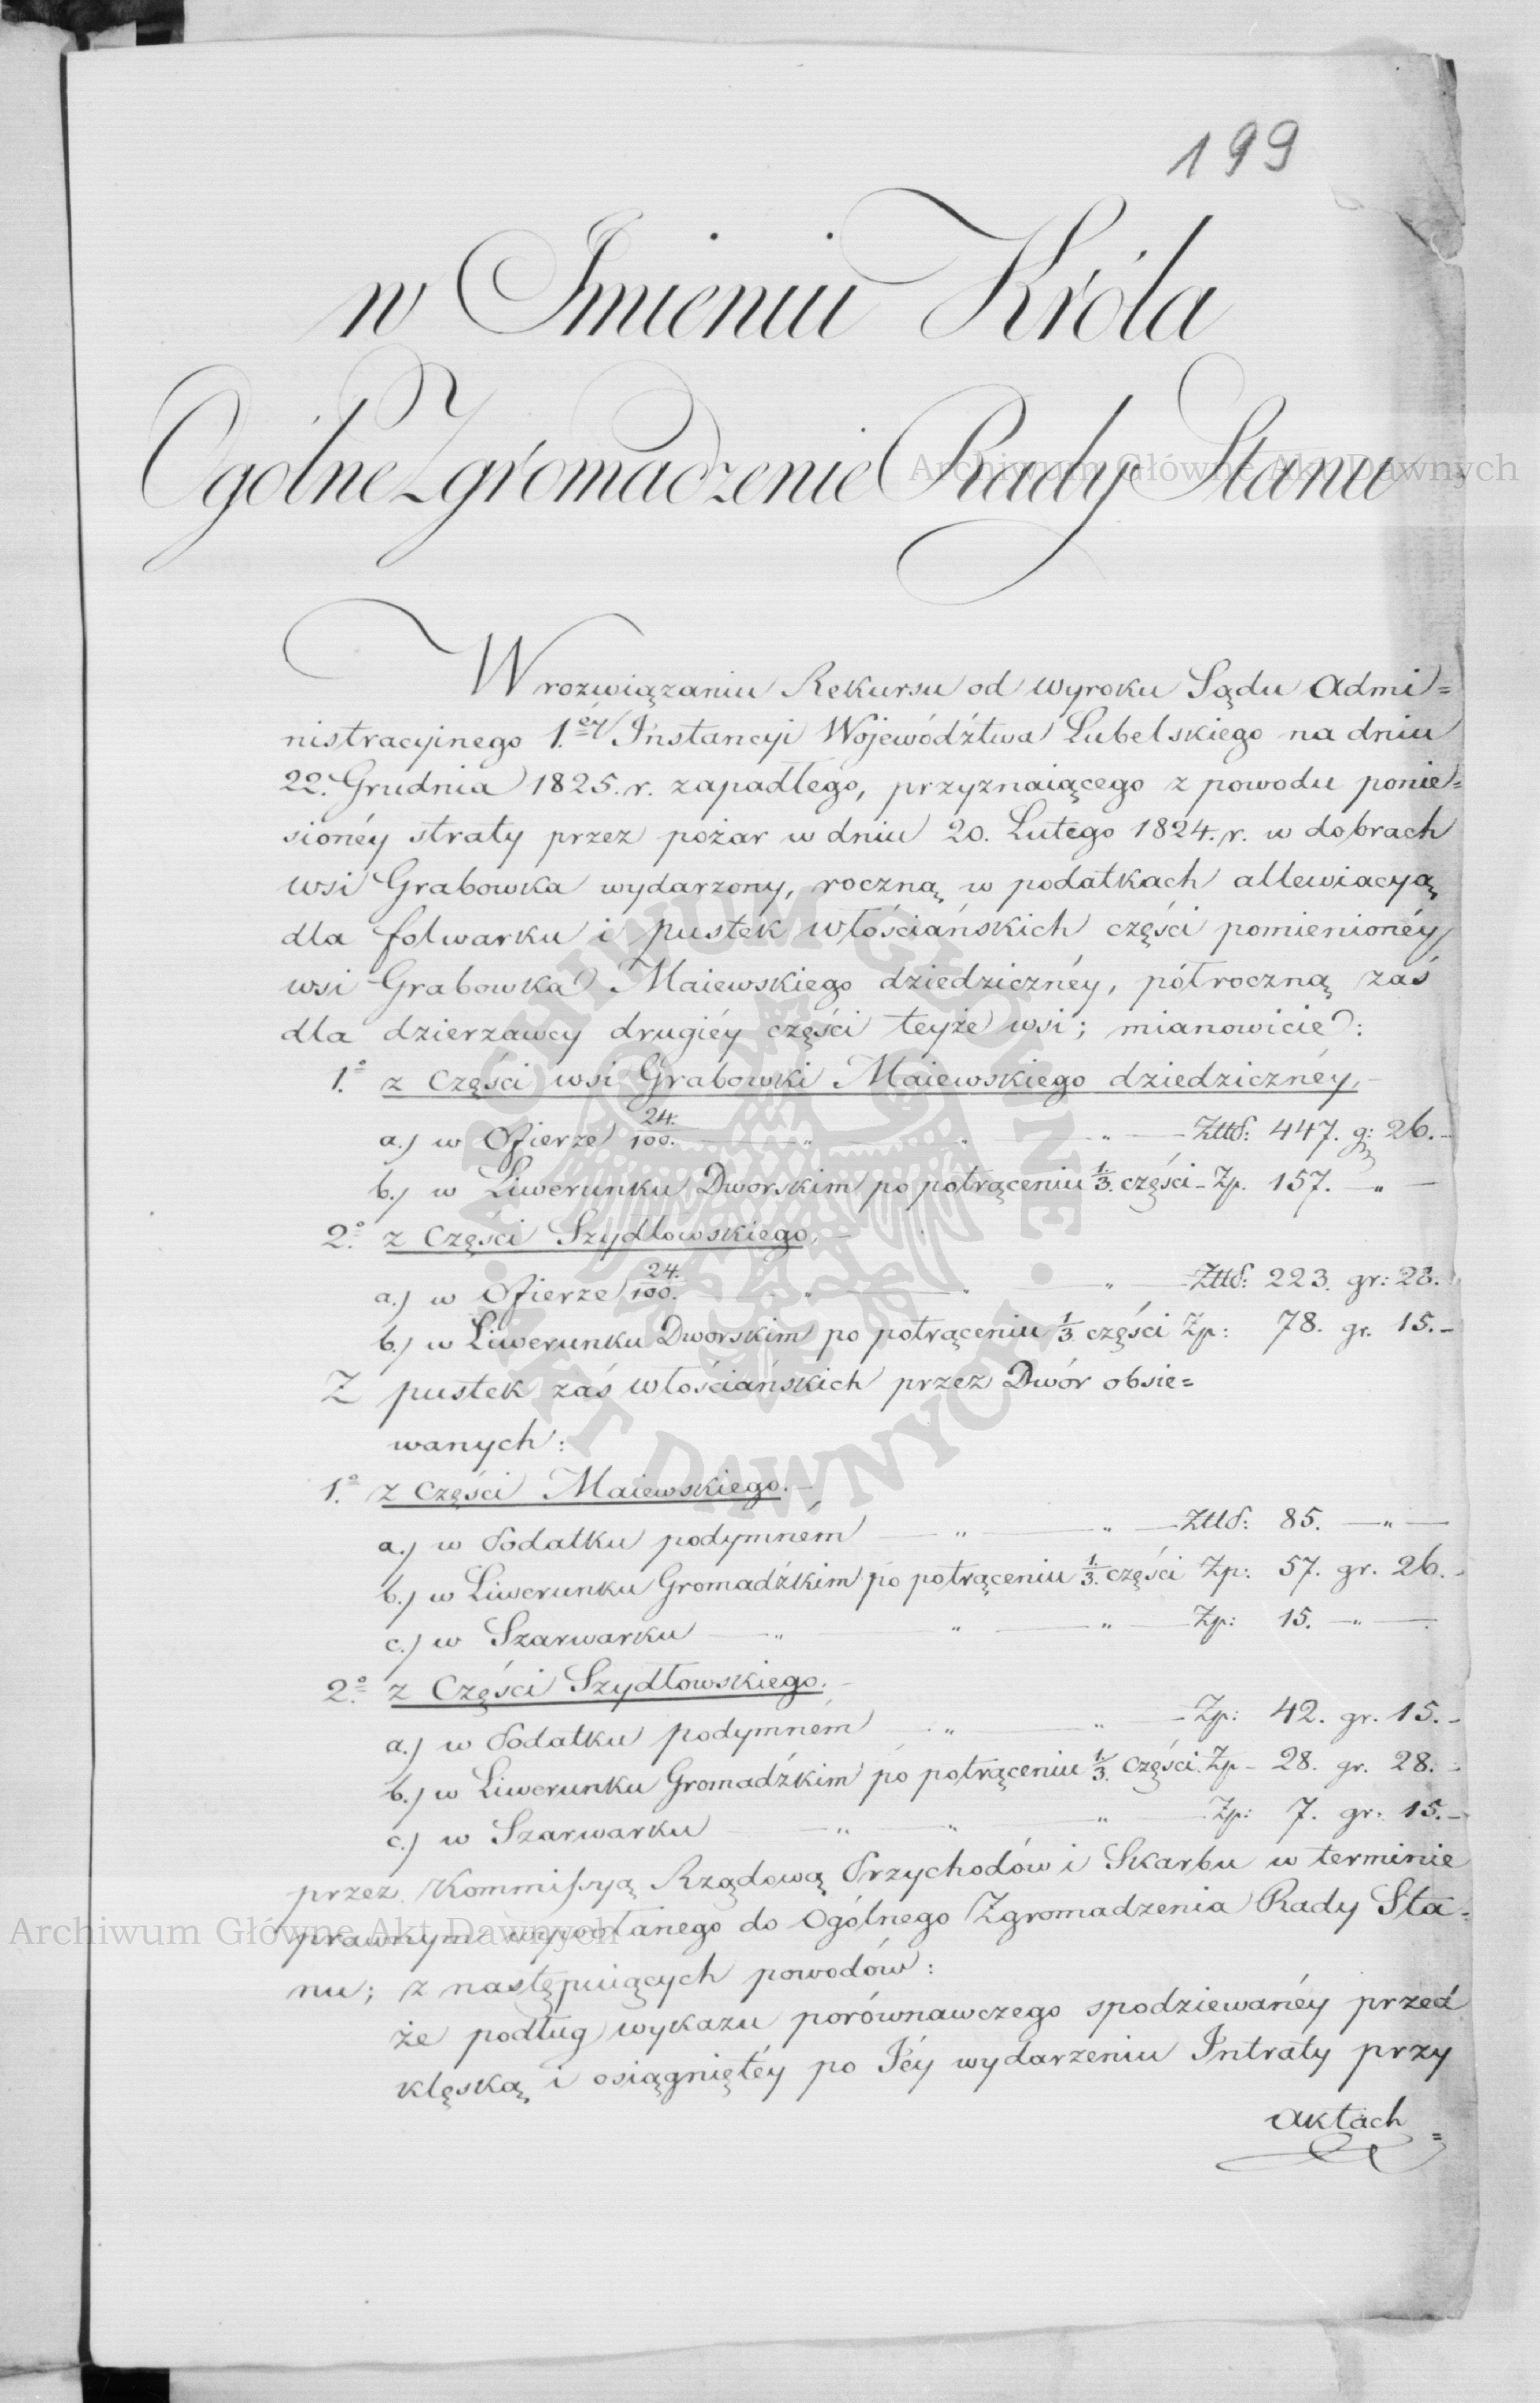 199
w Imieniu Króla
Ogólne Zgromadzenie Rady Stanu
W rozwiązaniu Rekursu od wyroku Sądu Admi=
nistracyinego 1.éy Instancyi Województwa Lubelskiego na dniu
22. Grudnia 1825. r. zapadłego, przyznaiącego z powodu ponie=
sionéy straty przez pożar w dniu 20. Lutego 1824. r. w dobrach
wsi Grabowka wydarzony, roczną w podatkach allewiacyą
dla folwarku i pustek włościańskich części pomienionéy
wsi Grabowka Maiewskiego dziedzicznéy, półroczną zaś
dla dzierzawcy drugiéy części teyże wsi; mianowicie:
1.° z Części wsi Grabowki Maiewskiego dziedzicznéy,
a.) w Ofierze 24./100. — " — " — " — Złtt: 447. g: 26. -
b.) w Liwerunku Dworskim po potrąceniu 1/3. części - Zp. 157. — " —
2.° z Części Szydłowskiego, —
a.) w Ofierze 24./100. — " — " — " — Złtt: 223. gr: 28.
b.) w Liwerunku Dworskim po potrąceniu 1/3 części Zp: 78. gr. 15. -
Z pustek zaś włościańskich przez Dwór obsie=
wanych:
1.° z Części Maiewskiego. —
a.) w Podatku podymném — " — " — Złtt: 85. — " —
b.) w Liwerunku Gromadźkim po potrąceniu 1/3. części Zp: 57. gr. 26. -
c.) w Szarwarku — " — " — " — Zp: 15. — " —
2.° z Części Szydłowskiego. —
a.) w Podatku podymném — " — " — Zp: 42. gr. 15. -
b.) w Liwerunku Gromadźkim po potrąceniu 1/3. Części. Zp - 28. gr. 28. -
c.) w Szarwarku — " — " — " — Zp: 7. gr. 15. -
przez Kommissyą Rządową Przychodów i Skarbu w terminie
prawnym wywołanego do Ogólnego Zgromadzenia Rady Sta=
nu; z następuiących powodów:
że podług wykazu porównawczego spodziewanéy przed
klęską i osiągniętéy po Iéy wydarzeniu Intraty przy
Aktach =
Archiwum Główne Akt Dawnych
Archiwum Główne Akt Dawnych
ARCHIWUM GŁÓWNE · AKT DAWNYCH ·